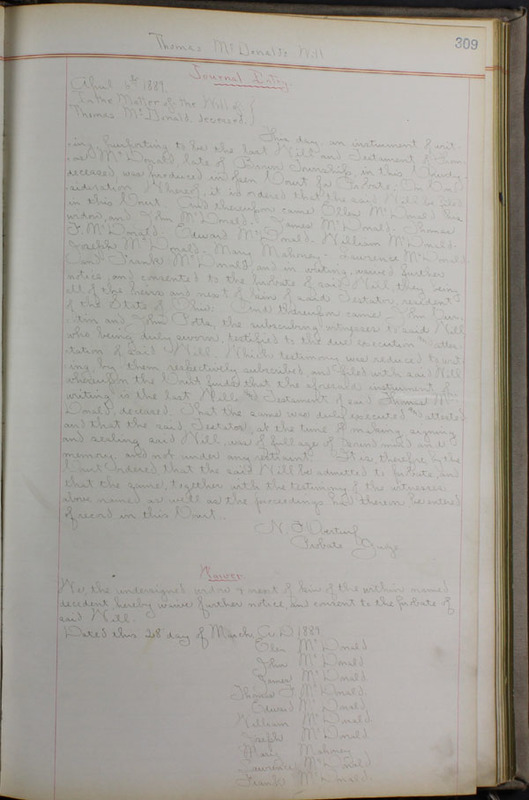 309
Thomas McDonald's Will
Journal Entry
April 6th 1889.
In the Matter of the Will of
Thomas McDonald, deceased
This day an instrument of writ-
ing, purporting to be the last Will and Testament of Thom-
as McDonald late of Township, in this County,
deceased was produced in open Court for Probate. On Con-
sideration Whereof, it is ordered that the said Will be filed
in this Court. And thereupon came Ellen McDonald his
widow, and John McDonald. James McDonald. Thomas
F. McDonald. Edward McDonald. William McDonald.
Joseph McDonald. Mary Mahoney. Lawrence McDonald
and Frank McDonald, and in writing, waived further
notice, and consented to the Probate of said Will they being
all of the heirs and next of kin of said Testator, resident
of the State of Ohio. And thereupon came John
and John Potts, the subscribing witnesses to said Will
who being duly sworn, testified to the due execution & attes-
tation of said Will. Which testimony was reduced to writ-
ing, by them respectively subscribed and filed with said Will
whereupon the Court finds that the aforesaid instrument of
writing is the last Will & Testament of said Thomas Mc
Donald, deceased. That the same was duly executed & attested
and that the said Testator, at the time of making, signing
and sealing said Will, was of full age, of sound mind and
memory and not under any restraint. It is therefore by the
Court Ordered that the said Will be admitted to Probate, and
that the same, together with the testimony of the witnesses
above named as well as the proceedings had thereon be entered
of record in this Court.
Probate Judge
Waiver
We, the undersigned widow & next of kin of the within named
decedent hereby waive further notice and consent to the probate of
said Will.
Dated this 28 day of March A.D. 1889
McDonald
John McDonald
James McDonald
Thomas F. McDonald
Edward McDonald
William McDonald
Joseph McDonald
Mary Mahoney
Lawrence McDonald
Frank McDonald